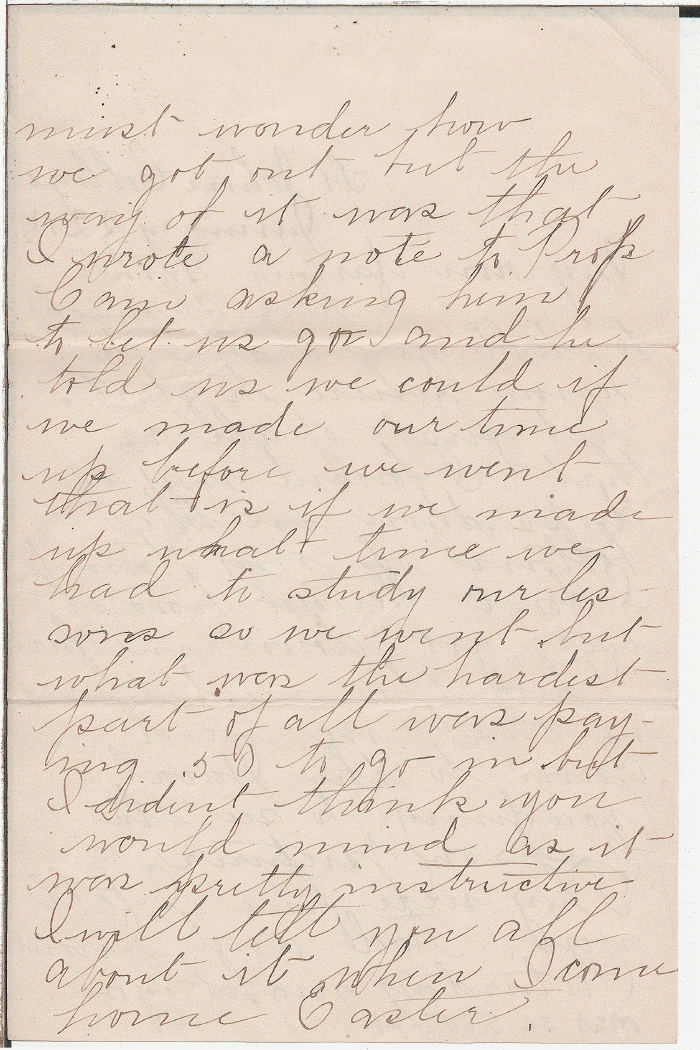 must wonder how
we got out but the
way of it was that
I wrote a note to Prof
Cain asking him
to let us go and he
told us we could if
we made our time
up before we went
that is if we made
up what time we
had to study our les-
sons so we went but
what was the hardest
part of all was pay-
ing .50 to go in but
I dident think you
would mind as it
was pretty instructive
I will tell you all
about it when I come
home Easter.